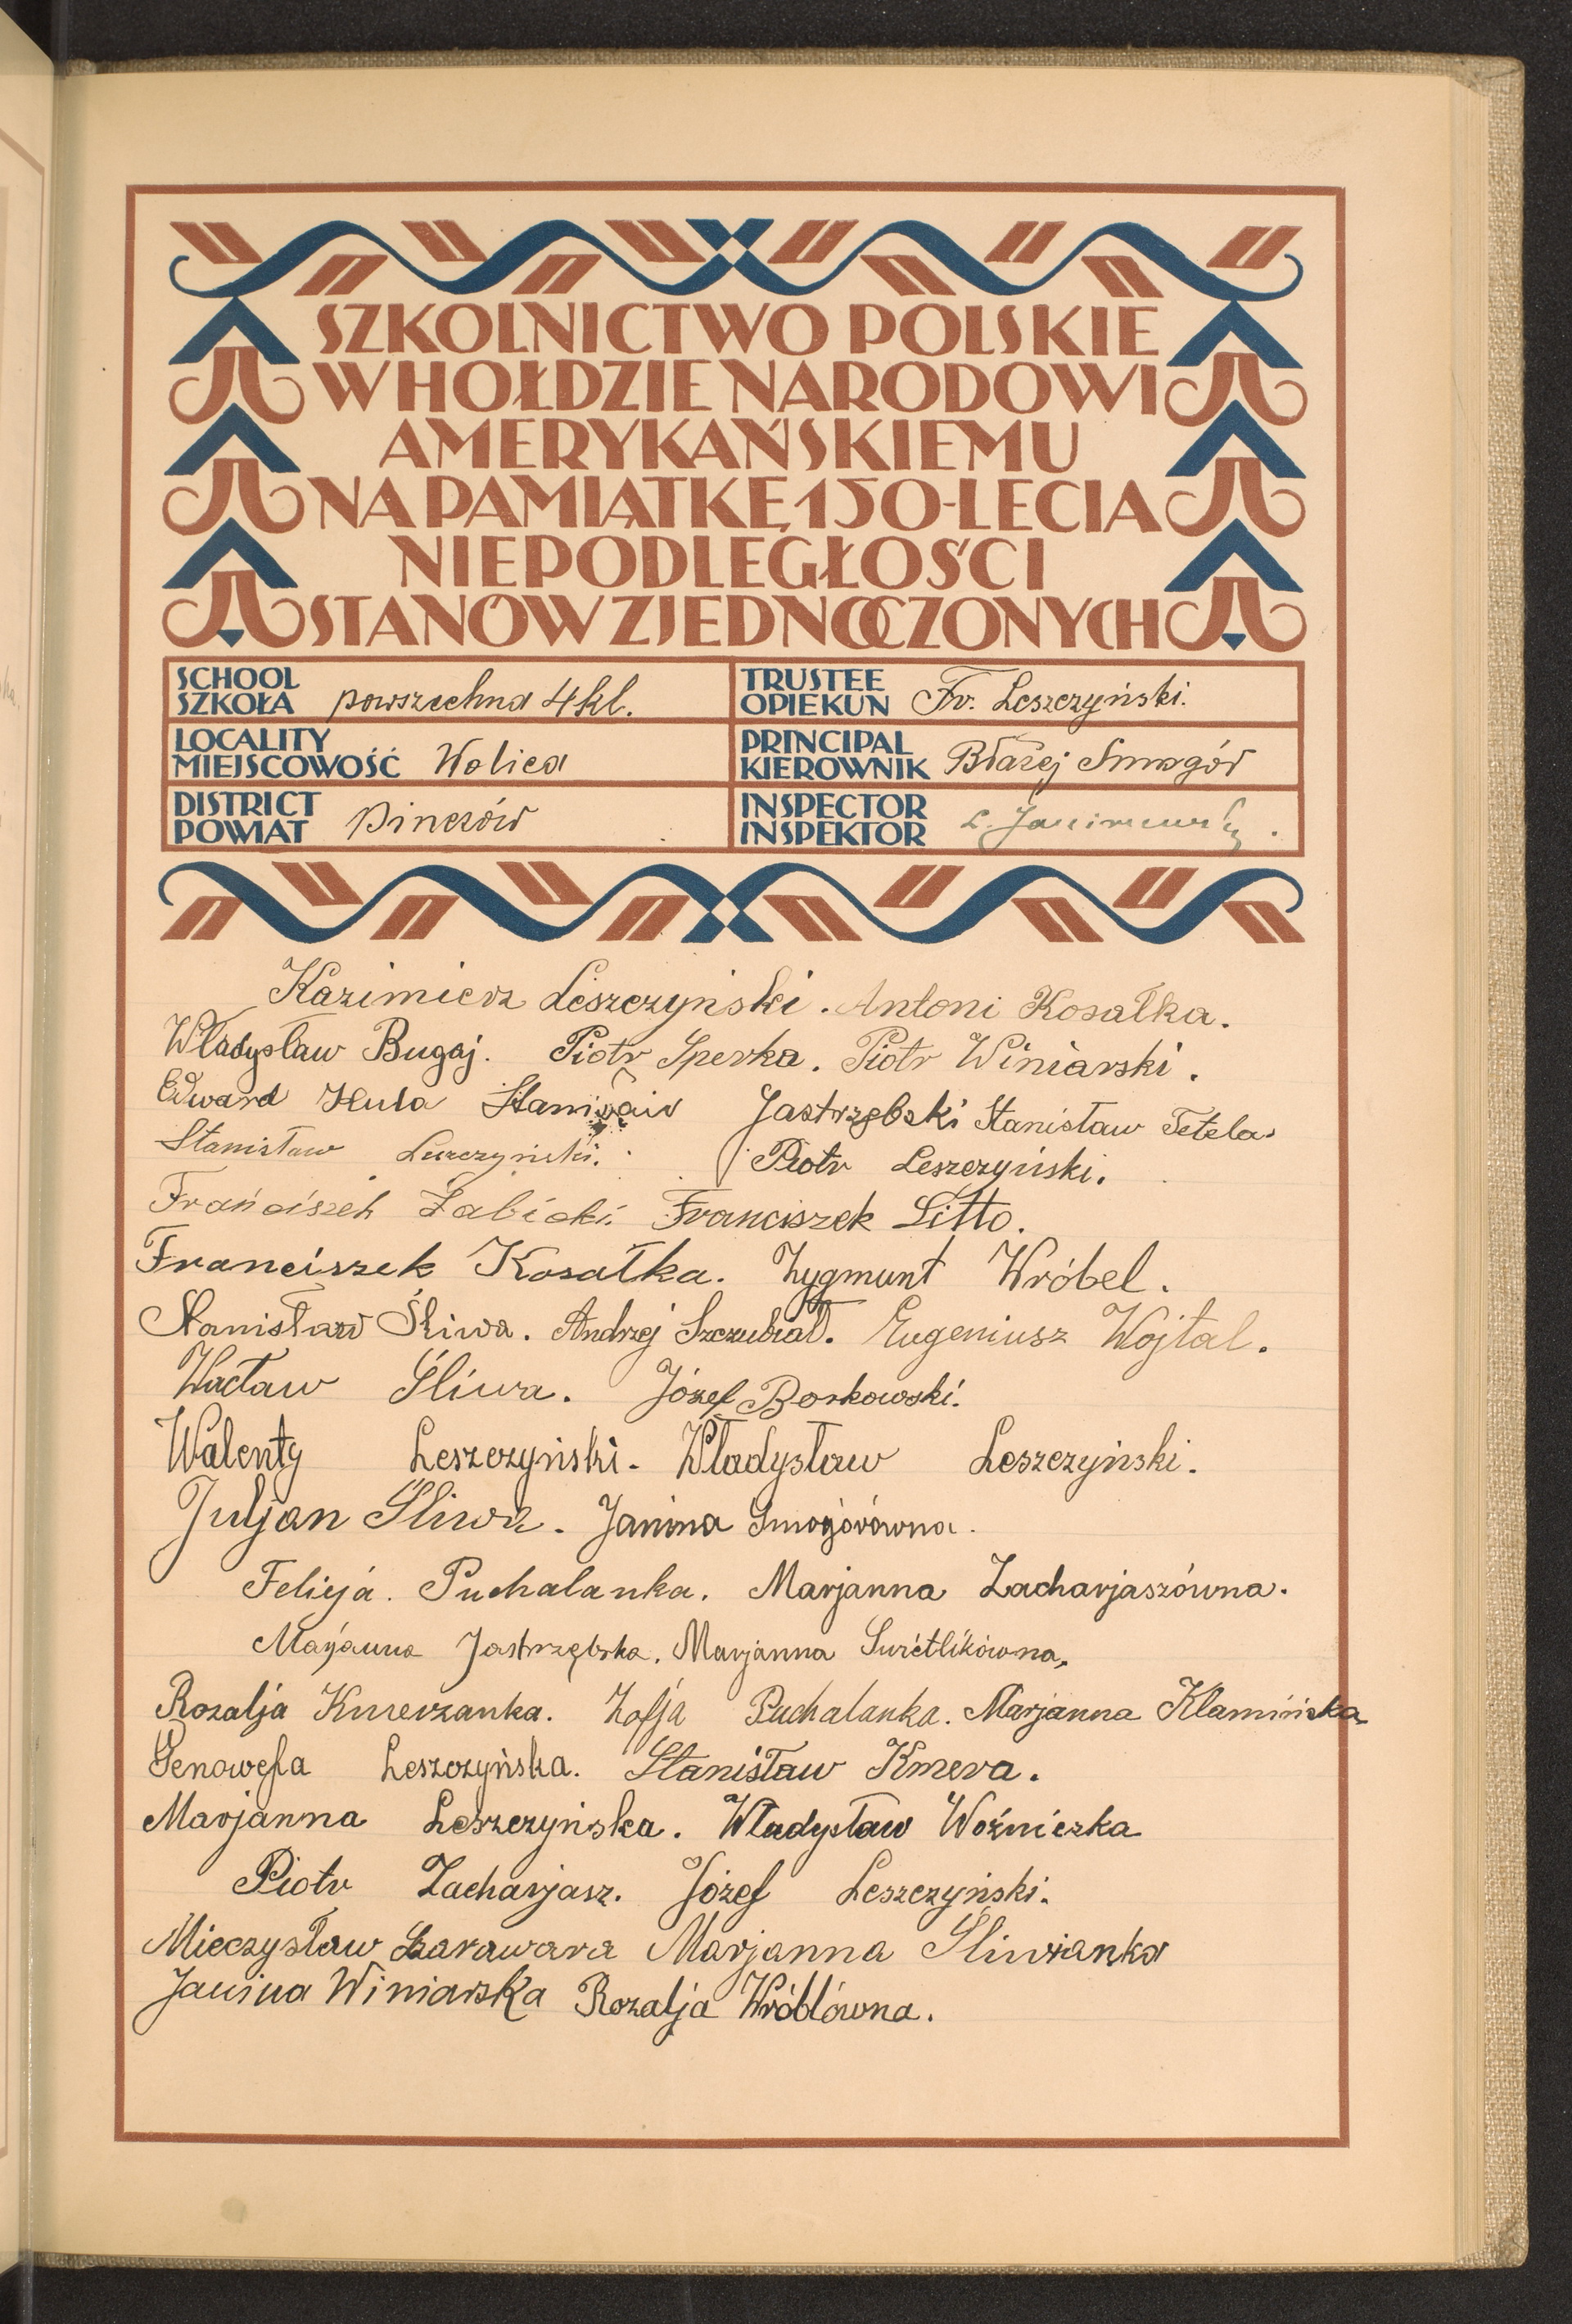 SZKOLNICTWO POLSKIE
W HOŁDZIE NARODOWI
AMERYKAŃSKIEMU
NA PAMIĄTKĘ 150-LECIA
NIEPODLEGŁOŚCI
STANÓW ZJEDNOCZONYCH
SCHOOL
SZKOŁA powszechna 4 kl.
TRUSTEE
OPIEKUN Fr. Leszczyński.
LOCALITY
MIEJSCOWOŚĆ Wolica
PRINCIPAL
KIEROWNIK Błażej Smogór
DISTRICT
POWIAT Pinczów
INSPECTOR
INSPEKTOR
Kazimierz Leszczyński. Antoni Kosałka.
Władysław Bugaj. Piotr Sperka. Piotr Winiarski.
Edward Hula Jastrzębski Stanisław Tetela.
Stanisław Piotr Leszczyński.
Franciszek Żabicki. Franciszek Litto.
Franciszek Kosałka. Zygmunt Wróbel.
Stanisław Śliwa. Andrzej Szczubiał. Eugeniusz Wojtal.
Wacław Śliwa. Józef Borkowski.
Walenty Leszczyński. Władysław Leszczyński.
Juljan Śliwa. Janina Smogórówna.
Felicja. Puchalanka. Marjanna Zacharjaszówna.
Marjanna Jastrzębska. Marjanna Świétlikówna,
Rozalja Kmerzanka. Zofja Puchalanka. Marjanna Klamińska
Genowefa Leszczyńska. Stanisław Kmera.
Marjanna Leszczyńska. Władysław Woźniczka
Piotr Zacharjasz. Józef Leszczyński.
Mieczysław Marjanna Śliwianka
Janina Winiarska Rozalja Wróblówna.